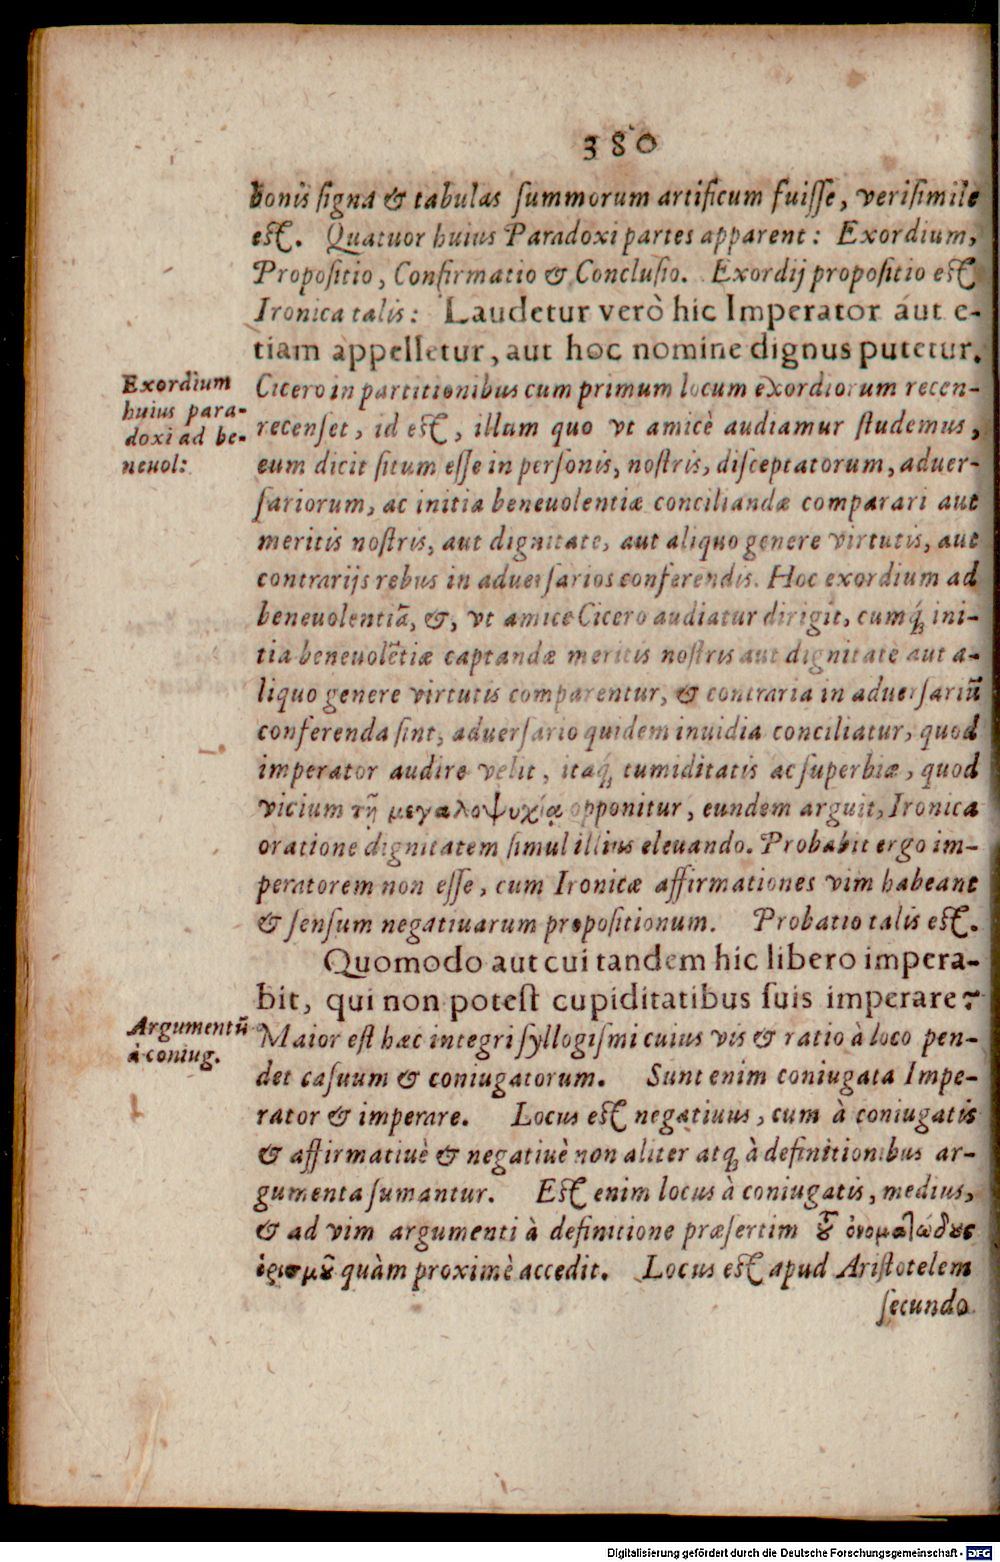 380
bonis signa & tabulas summorum artificum fuisse, verisimile
est. Quatuor huius Paradoxi partes apparent: Exordium,
Propositio, Confirmatio & Conclusio. Exordij propositio est
Ironica talis: Laudetur verò hic Imperator aut e-
tiam appelletur, aut hoc nomine dignus putetur.
Exordium
huius para-
doxi ad be-
neuol:
Cicero in partitionibus cum primum locum exordiorum recen-
recenset, id est, illum quo vt amicè audiamur studemus,
eum dicit situm esse in personis, nostris, disceptatorum, aduer-
sariorum, ac initia beneuolentiæ conciliandæ comparari aut
meritis nostris, aut dignitate, aut aliquo genere virtutis, aut
contrarijs rebus in aduersarios conferendis. Hoc exordium ad
beneuolentiã, &, vt amice Cicero audiatur dirigit, cumq́; ini-
tia beneuolẽtiæ captandæ meritis nostris aut dignitate aut a-
liquo genere virtutis comparentur, & contraria in aduersariũ
conferenda sint, aduersario quidem inuidia conciliatur, quod
imperator audire velit, itaq́; tumiditatis ac superbiæ, quod
vicium τῇ μεγαλοψυχίᾳ opponitur, eundem arguit, Ironica
oratione dignitatem simul illius eleuando. Probabit ergo im-
peratorem non esse, cum Ironicæ affirmationes vim habeant
& sensum negatiuarum propositionum. Probatio talis est.
Quomodo aut cui tandem hic libero impera-
bit, qui non potest cupiditatibus suis imperare?
Argumentũ
à coniug.
Maior est hæc integri syllogismi cuius vis & ratio à loco pen-
det casuum & coniugatorum. Sunt enim coniugata Impe-
rator & imperare. Locus est negatiuus, cum à coniugatis
& affirmatiuè & negatiuè non aliter atq; à definitionibus ar-
gumenta sumantur. Est enim locus à coniugatis, medius,
& ad vim argumenti à definitione præsertim τοῦ ὀνοματώδους
ὁρισμοῦ quàm proximè accedit. Locus est apud Aristotelem
secundo
Digitalisierung gefördert durch die Deutsche Forschungsgemeinschaft - DFG